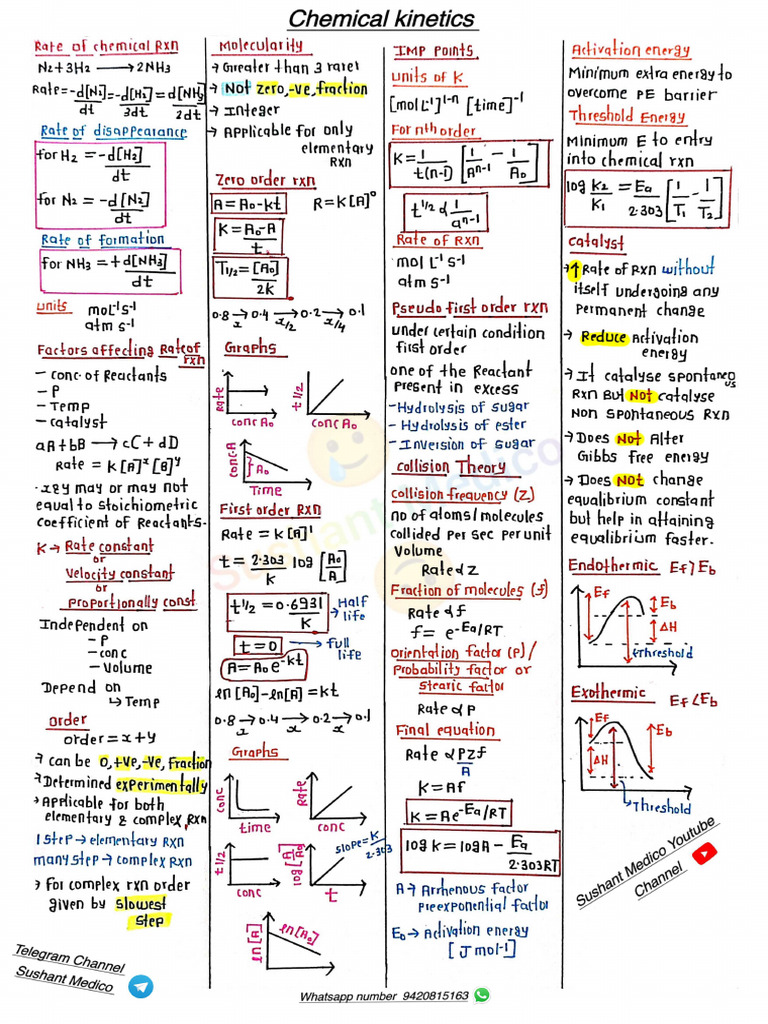 Chemical kinetics
Rate of chemical Rxn
N₂+3H₂ ⟶ 2NH₃
Rate=-d[N₂]/dt=-d[H₂]/3dt=d[NH₃]/2dt
Rate of disappearance
for H₂ = -d[H₂]/dt
for N₂ = -d[N₂]/dt
Rate of formation
for NH₃ = +d[NH₃]/dt
units moL⁻¹s⁻¹
atm s⁻¹
Factors affecting Rate of
rxn
- conc. of Reactants
- P
- Temp
- catalyst
aA+bB ⟶ cC+dD
Rate = K[A]ˣ[B]ʸ
. x & y may or may not
equal to stoichiometric
coefficient of Reactants.
K → Rate constant
or
velocity constant
or
proportionally const
Independent on
- P
- conc
- Volume
Depend on
↳ Temp
order
order = x+y
→ can be 0,+ve,-ve, fraction
→ Determined experimentally
→ Applicable for both
elementary & complex Rxn
1 step → elementary Rxn
many step → complex Rxn
→ For complex rxn order
given by slowest
step
Molecularity
→ Greater than 3 rare!
→ Not zero,-ve, fraction
→ Integer
→ Applicable for only
elementary
Rxn
Zero order rxn
A = A₀-kt R = K[A]⁰
K = A₀-A/t
T₁/₂ = [A₀]/2K
0.8 →x 0.4 →x/2 0.2 →x/4 0.1
Graphs
Rate
conc A₀
t1/2
conc A₀
conc.A
A₀
Time
First order Rxn
Rate = K[A]¹
t = 2.303/K log [A₀/A]
t1/2 = 0.6931/K → Half
life
t=0 → full
life
A = A₀e⁻ᵏᵗ
ln[A₀]-ln[A] = kt
0.8 →x 0.4 →x 0.2 →x 0.1
Graphs
conc
time
Rate
conc
t1/2
conc
log[A₀/A]
slope=K/2.303
t
ln[A]
ln[A₀]
IMP POINTS
units of K
[mol L⁻¹]¹⁻ⁿ [time]⁻¹
For nth order
K = 1/t(n-1) [1/Aⁿ⁻¹ - 1/A₀]
t1/2 α 1/aⁿ⁻¹
Rate of Rxn
mol L⁻¹ s⁻¹
atm s⁻¹
Pseudo first order rxn
under certain condition
first order
one of the Reactant
present in excess
- Hydrolysis of sugar
- Hydrolysis of ester
- Inversion of sugar
collision Theory
collision frequency (Z)
no of atoms/molecules
collided per sec per unit
Volume
Rate α Z
Fraction of molecules (f)
Rate α f
f = e⁻ᴱᵃ/ᴿᵀ
orientation factor (P)/
Probability factor or
stearic factor
Rate α P
Final equation
Rate α PZf
A
K = Af
K = Ae⁻ᴱᵃ/ᴿᵀ
log K = log A - Ea/2.303RT
A → Arrhenous factor
preexponential factor
Ea → Activation energy
[Jmol⁻¹]
Activation energy
Minimum extra energy to
overcome PE barrier
Threshold Energy
Minimum E to entry
into chemical rxn
log K₂/K₁ = Ea/2.303 [1/T₁ - 1/T₂]
catalyst
→ ↑ Rate of Rxn without
itself undergoing any
permanent change
→ Reduce Activation
energy
→ It catalyse spontaneous
Rxn But Not catalyse
non spontaneous Rxn
→ Does Not Alter
Gibbs free energy
→ Does Not change
equalibrium constant
but help in attaining
equalibrium faster.
Endothermic Ef > Eb
Ef
Eb
ΔH
Threshold
Exothermic Ef < Eb
Ef
Eb
ΔH
Threshold
Sushant Medico Youtube
Channel
Telegram Channel
Sushant Medico
Whatsapp number 9420815163
Sushant Medico